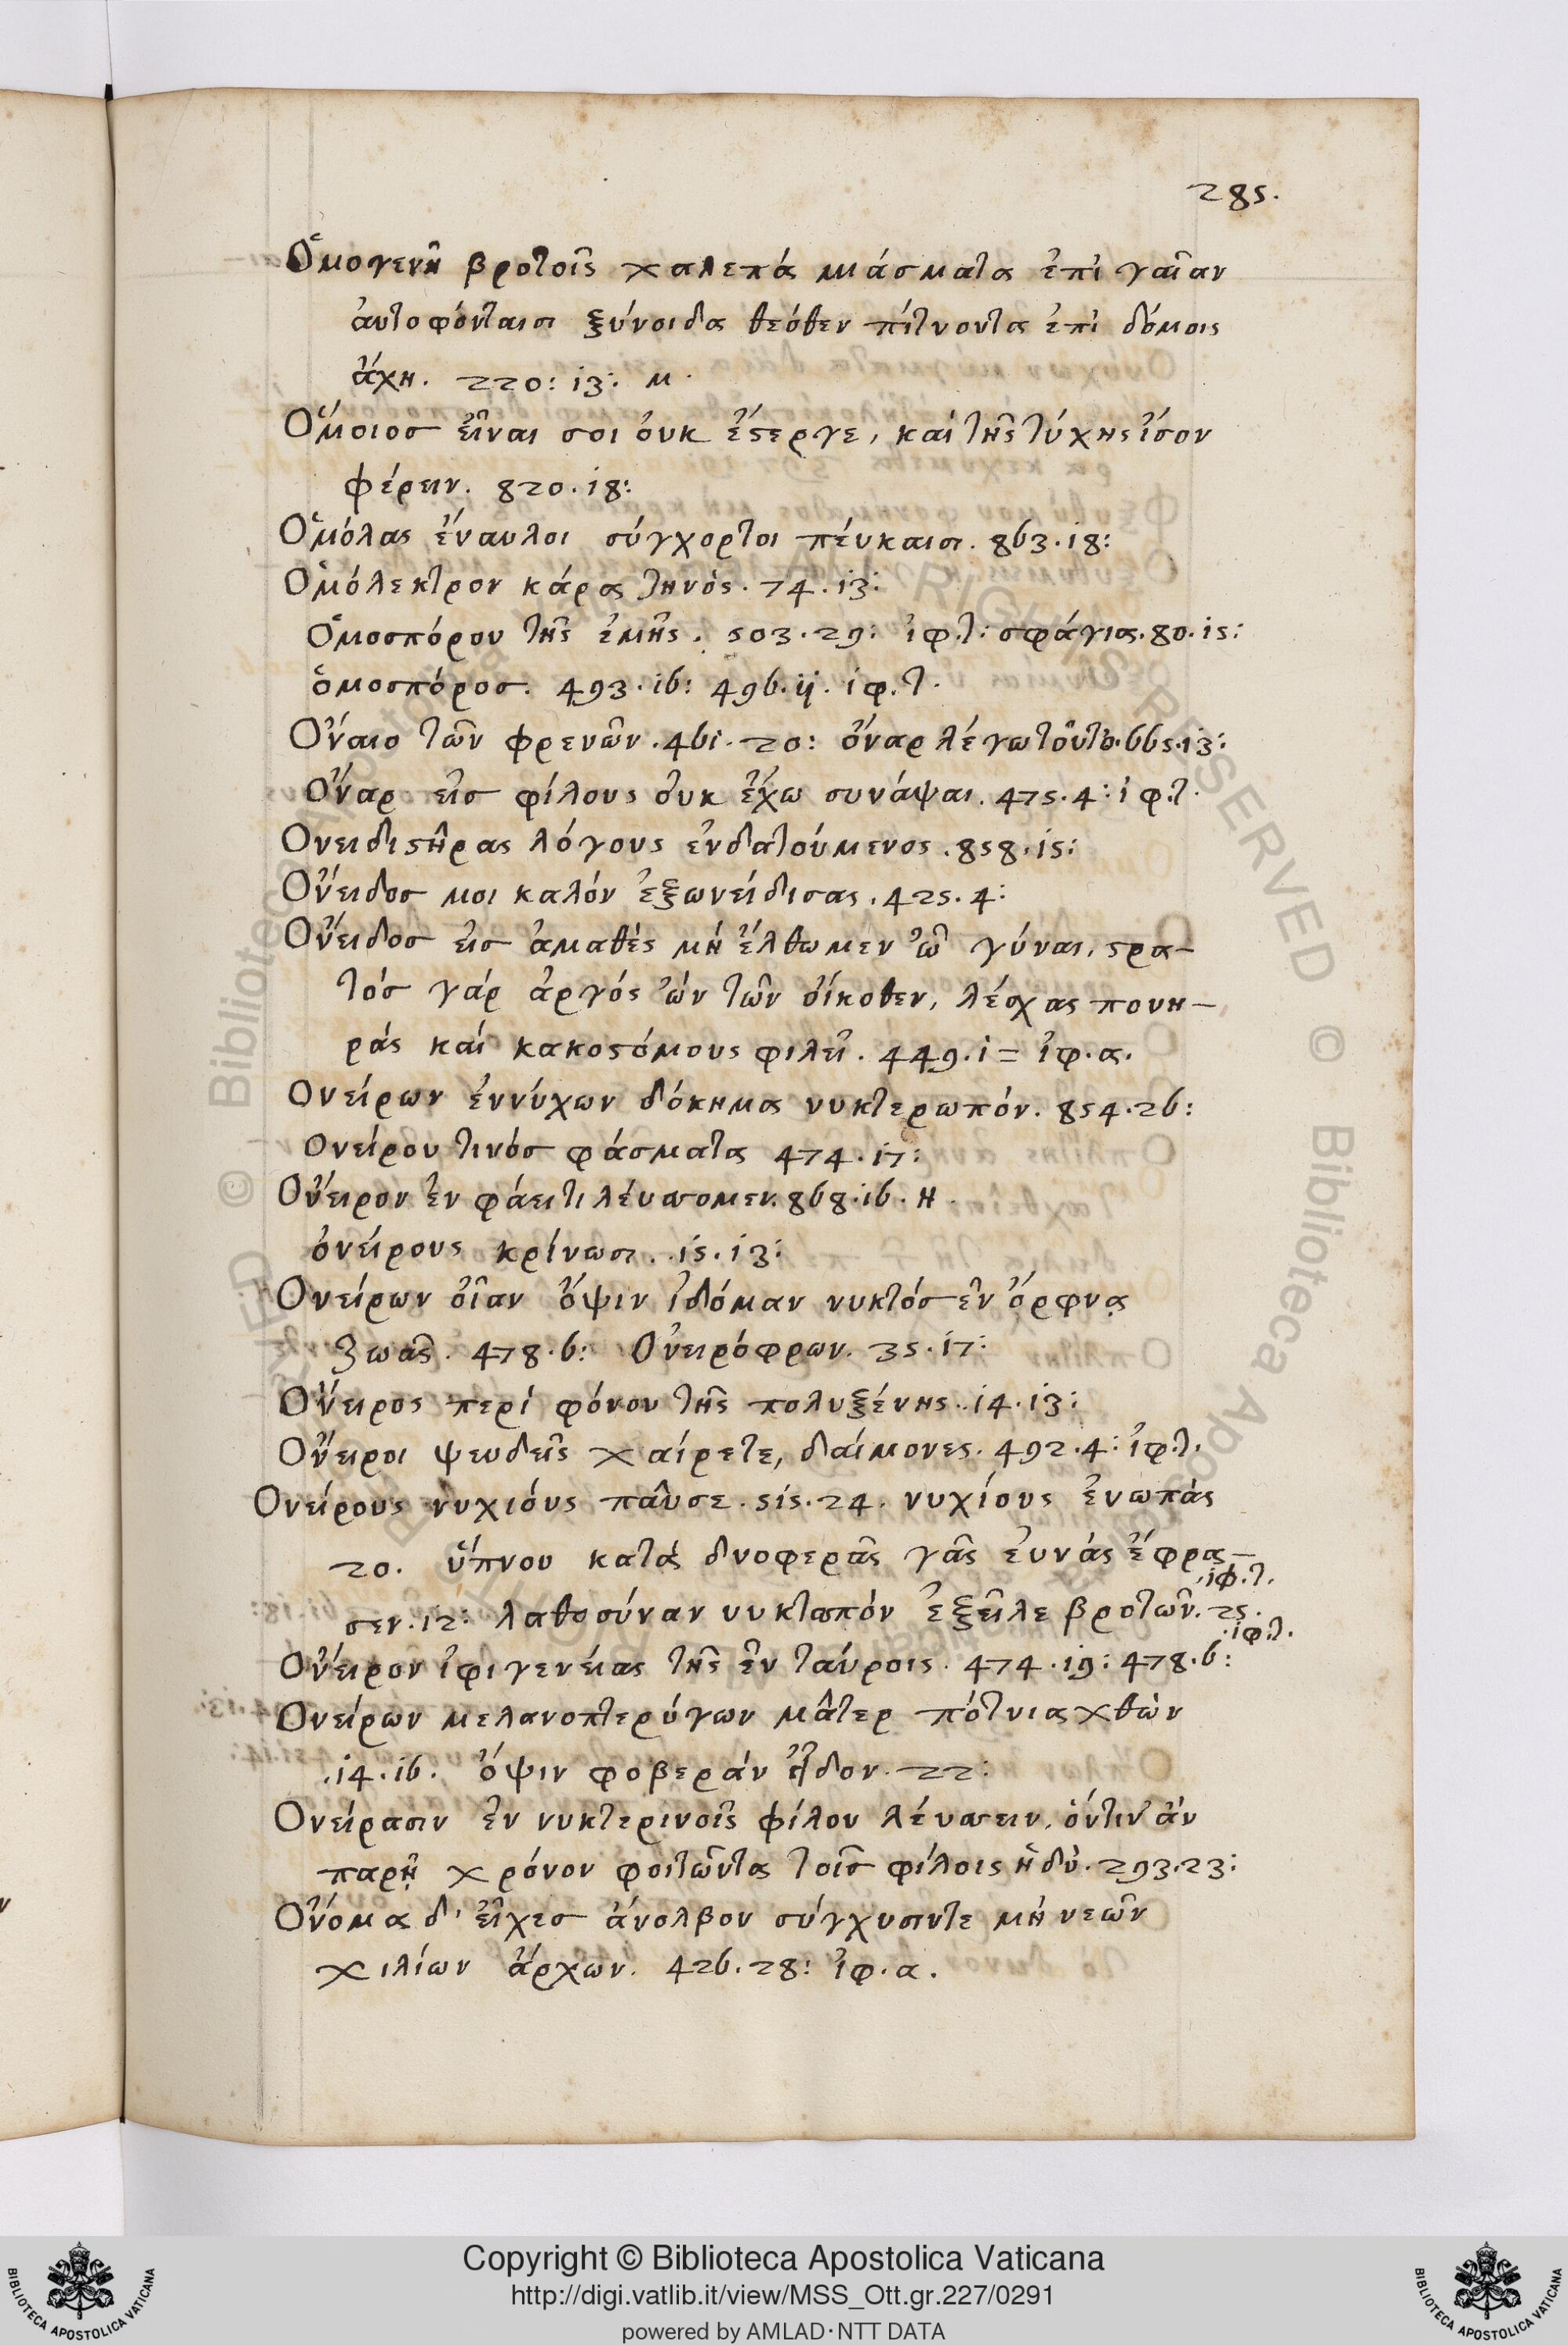 285.
Ὁμογενῆ βροτοῖς χαλεπὰ μιάσματα ἐπὶ γαῖαν
ἀυτοφόνταισι ξύνοιδα θεόθεν πίτνοντα ἐπὶ δόμοις
ἄχη. 220: 13: μ.
Ὅμοιος εἶναι σοι ὀυκ ἔϛεργε, καὶ τῆς τύχης ἴσον
φέρειν. 820. 18:
Ὁμόλας ἔναυλοι σύγχορτοι πέυκαισι. 863. 18:
Ὁμόλεκτρον κάρα ζηνὸς. 74. 13:
Ὁμοσπόρου τῆς ἐμῆς. 503. 29: ἰφ.τ: σφάγια. 80. 15:
ὁμοσπόρος. 493. 16: 496. 11. ἰφ.τ.
Ὄναιο τῶν φρενῶν. 461. 20: ὄναρ λέγω τοῦτο. 665. 13:
Ὄναρ εἰς φίλους ὀυκ ἔχω συνάψαι. 475. 4: ἰφ.τ.
Ονειδιϛῆρας λόγους ἐνδατούμενος. 858. 15:
Ὄνειδος μοι καλόν ἐξωνείδισας. 425. 4:
Ὄνειδος εἰς ἀμαθὲς μὴ ἔλθωμεν ὦ γύναι, ϛρα-
τὸς γάρ ἀργός ὢν τῶν ὄίκοθεν, λέσχας πονη-
ράς καί κακοϛόμους φιλεῖ. 449. 1 = ἰφ.α.
Ονείρων ἐννύχων δόκημα νυκτερωπόν. 854. 26:
Ονείρου τινὸς φάσματα 474. 17:
Ὄνειρον ἐν φάει τι λέυσσομεν. 868. 16. Η.
ὀνείρους κρίνωσι. 15. 13:
Ονείρων ὅιαν ὄψιν ἰδόμαν νυκτός ἐν ὄρφνᾳ
ζωᾶς. 478. 6: Ὀνειρόφρων. 35. 17:
Ὄνειρος περί φόνου τῆς πολυξένης. 14. 13:
Ὄνειροι ψευδεῖς χαίρετε, δαίμονες. 492. 4: ἰφ.τ.
Ονείρους νυχιόυς παῦσε. 515. 24. νυχίους ἐνωπάς
20. ὕπνου κατὰ δνοφερᾶς γᾶς ἐυνάς ἔφρα-
.ἰφ.τ.
σεν. 12: λαθοσύναν νυκτωπόν ἐξεῖλε βροτῶν. 25.
.ἰφ.τ.
Ὄνειρον ἰφιγενείας τῆς ἐν ταύροις. 474. 19: 478. 6:
Ονείρων μελανοπτερύγων μᾶτερ πότνια χθὼν
.14. 16. ὄψιν φοβεράν εἶδον. 22:
Ονείρασιν ἐν νυκτερινοῖς φίλον λέυσσειν, ὅντιν ἀν
παρῇ χρόνον φοιτῶντα τοῖς φίλοις ἡδὺ. 293. 23:
Ὄνομα δ' εἶχες ἄνολβον σύγχυσιντε μὴ νεῶν
χιλίων ἄρχων. 426. 28: ἰφ.α.
Copyright © Biblioteca Apostolica Vaticana
http://digi.vatlib.it/view/MSS_Ott.gr.227/0291
powered by AMLAD·NTT DATA